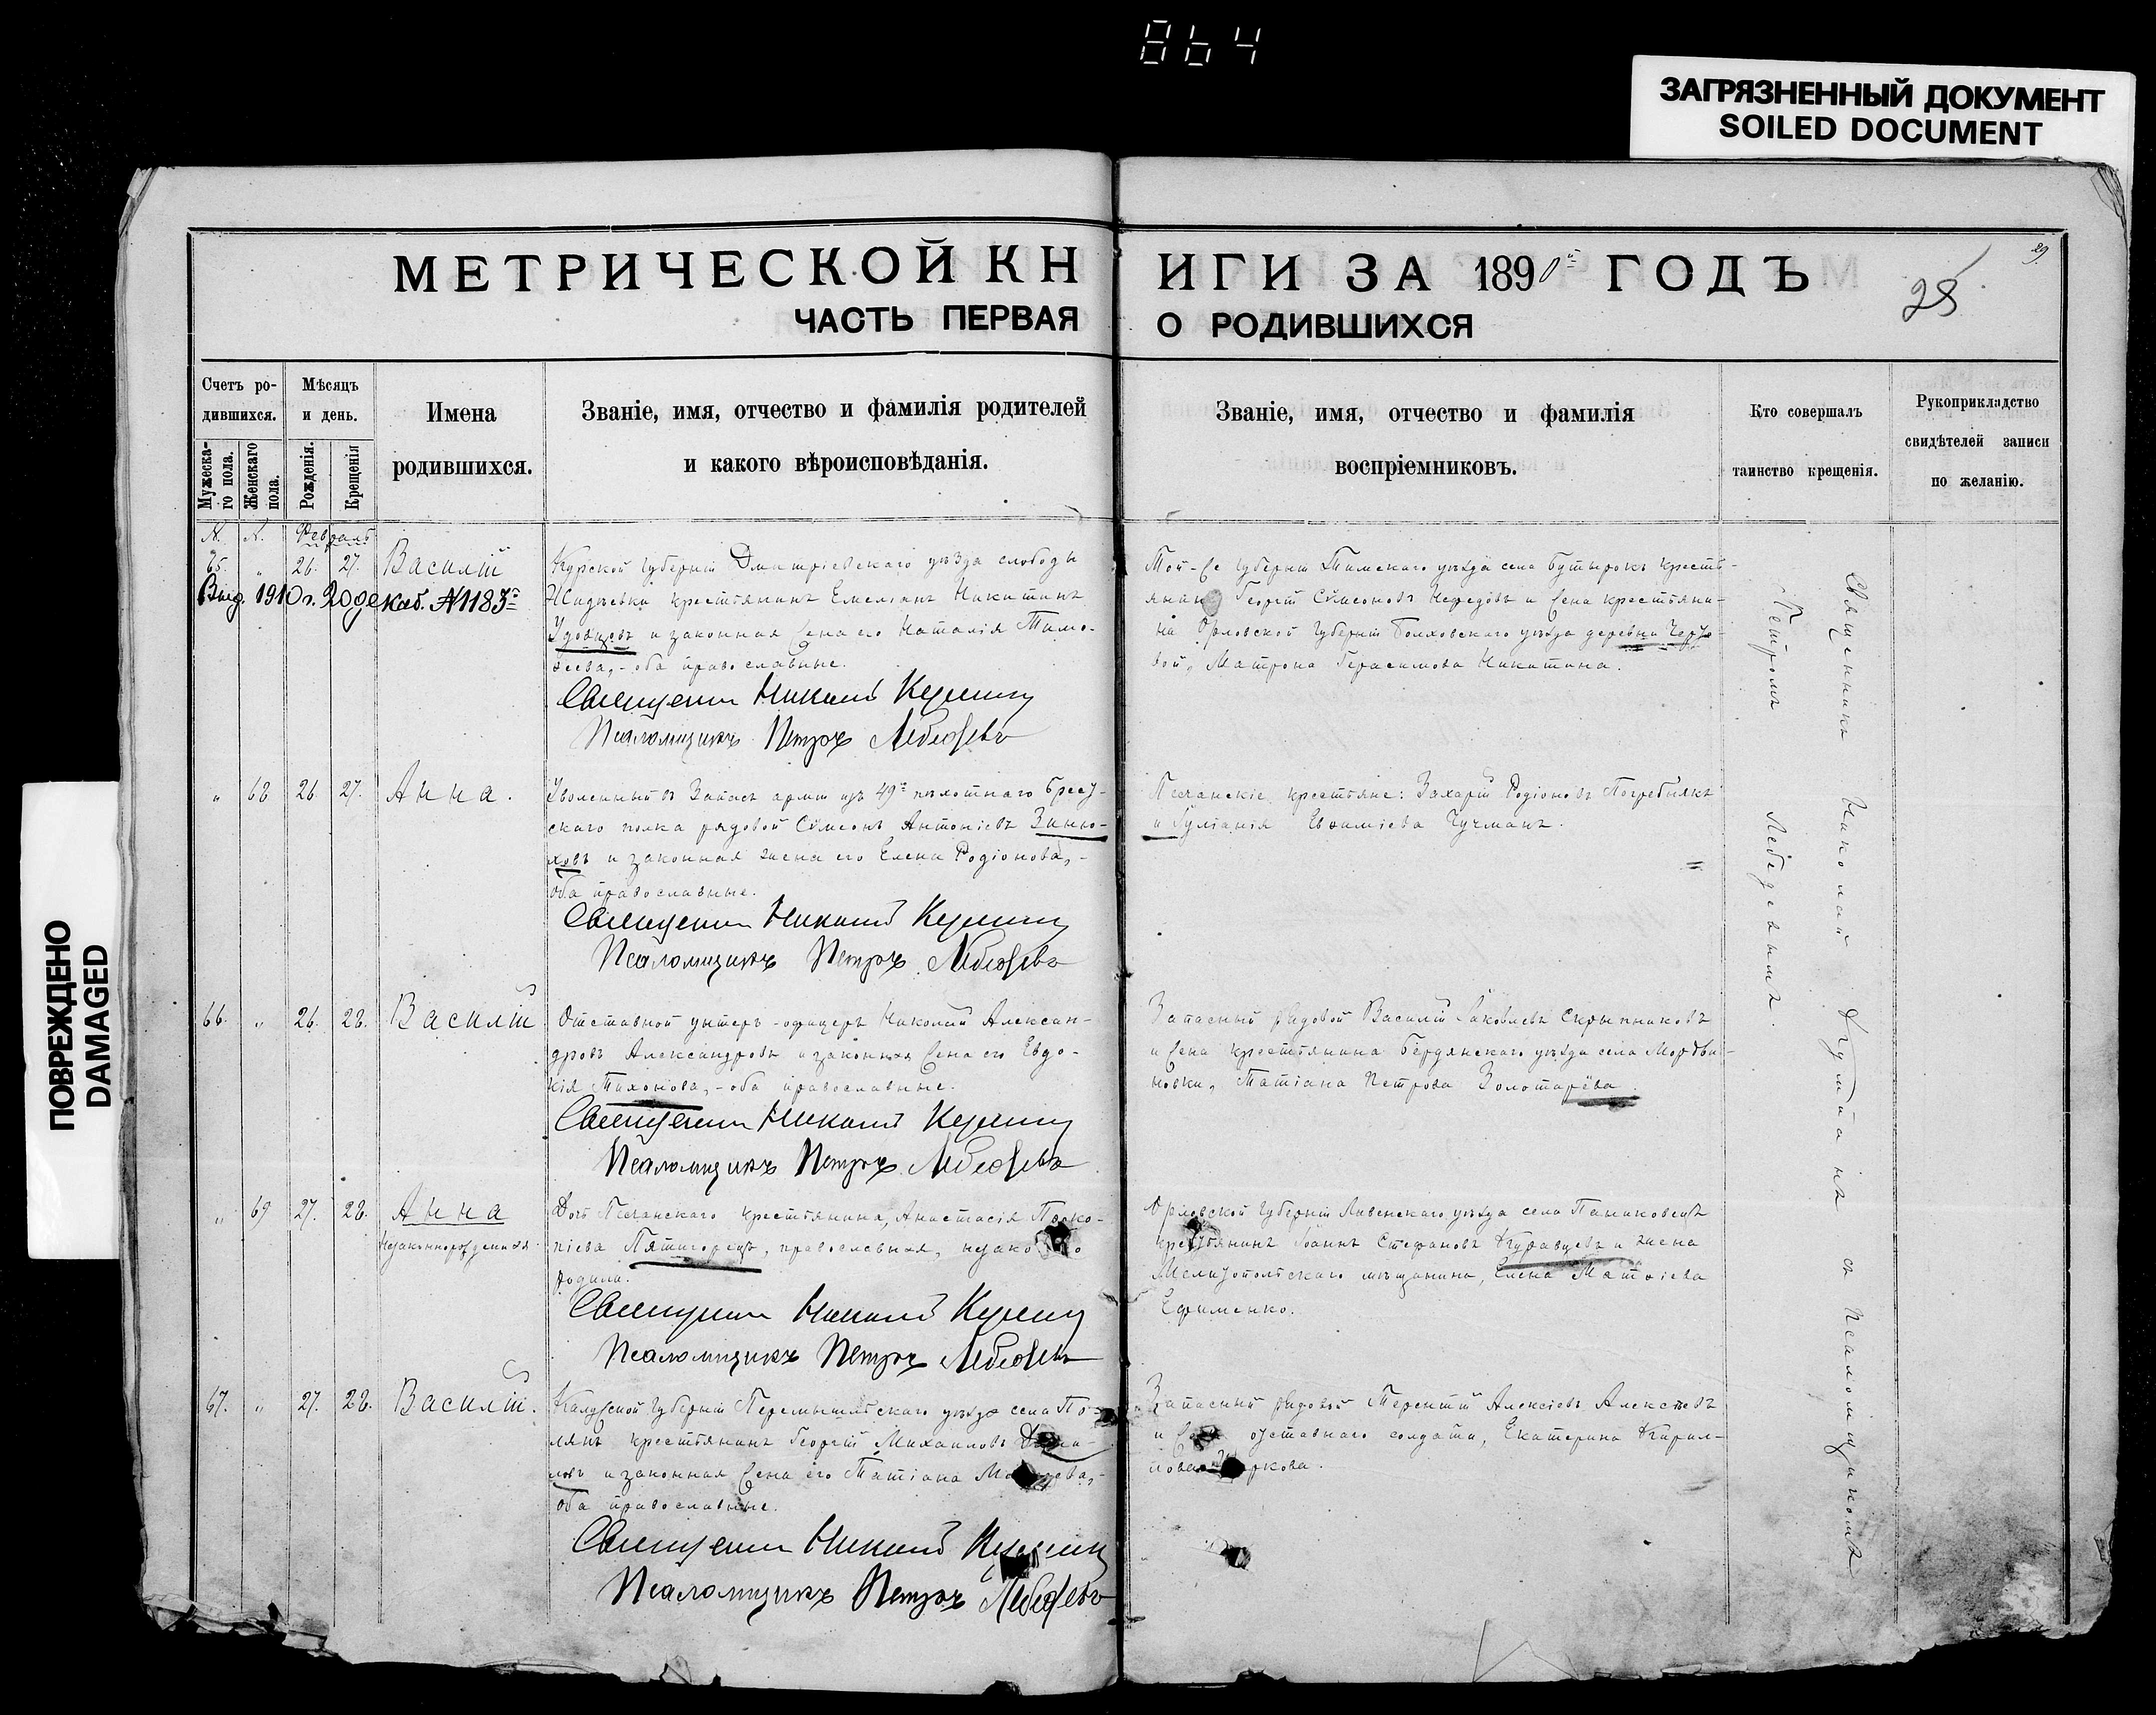 864
ЗАГРЯЗНЕННЫЙ ДОКУМЕНТ
SOILED DOCUMENT
ПОВРЕЖДЕНО
DAMAGED
29
28
МЕТРИЧЕСКОЙ КНИГИ ЗА 1890й ГОДЪ
ЧАСТЬ ПЕРВАЯ О РОДИВШИХСЯ
Счетъ ро-
дившихся.
Мужеска-
го пола.
Женскаго
пола.
Мѣсяцъ
и день.
Рожденія.
Крещенія
Имена
родившихся.
Званіе, имя, отчество и фамилія родителей
и какого вѣроисповѣданія.
Званіе, имя, отчество и фамилія
воспріемниковъ.
Кто совершалъ
таинство крещенія.
Рукоприкладство
свидѣтелей записи
по желанію.
Февраль
65. " 26. 27. Василій
Выд. 1910 г. 20 декаб. № 1183
Курской губерніи Дмитріевскаго уѣзда слободы
крестьянинъ Емеліанъ Никитинъ
Удовцовъ и законная жена его Наталія Тимо-
ѳеева, - оба православные.
Священникъ Николай
Псаломщикъ Петръ Лебедевъ
Той-же губерніи Тимскаго уѣзда села Бутырокъ кресть-
янинъ Георгій Сѵмеоновъ и жена крестьяни-
на Орловской губерніи Болховскаго уѣзда деревни
Матрона Герасимова Никитина.
" 68 26 27. Анна.
Уволенный въ запасъ арміи изъ 49го пѣхотнаго Брест-
скаго полка рядовой Сѵмеонъ Антоніевъ Зиню-
ховъ и законная жена его Елена Родіонова, -
оба православные.
Священникъ Николай
Псаломщикъ Петръ Лебедевъ
Песчанскіе крестьяне: Захарій Родіоновъ Погребнякъ
и Іуліанія Евѳиміева Гучманъ.
66. " 26. 28. Василій
Отставной унтеръ-офицеръ Николай Александ-
дровъ Александровъ и законная жена его Евдо-
кія Тихонова, - оба православные.
Священникъ Николай
Псаломщикъ Петръ Лебедевъ
Запасный рядовой Василій Іаковлевъ Скрыпниковъ
и жена крестьянина Бердянскаго уѣзда села Мордви-
новки, Татіана Петрова Золотарёва.
" 69 27. 28. Анна
незаконнорожденная
Дочь Песчанскаго крестьянина, Анастасія Проко-
піева Пятигорецъ, православная,
родила.
Священникъ Николай
Псаломщикъ Петръ Лебедевъ
Орловской губерніи Ливенскаго уѣзда села Паниковецъ
крестьянинъ Іоаннъ Стефановъ Журавцевъ и жена
Мелитопольскаго мѣщанина, Елена Матѳіева
Ефименко.
67. " 27. 28. Василій.
Калужской губерніи Перемышльскаго уѣзда села По-
лянъ крестьянинъ Георгій Михаиловъ
и законная жена его Татіана
оба православные.
Священникъ Николай
Псаломщикъ Петръ Лебедевъ
Запасный рядовой Терентій Алексіевъ Алексѣевъ
и жена отставнаго солдата, Екатерина Кирил-
лова
Священникъ Николай съ псаломщикомъ
Петромъ Лебедевымъ.